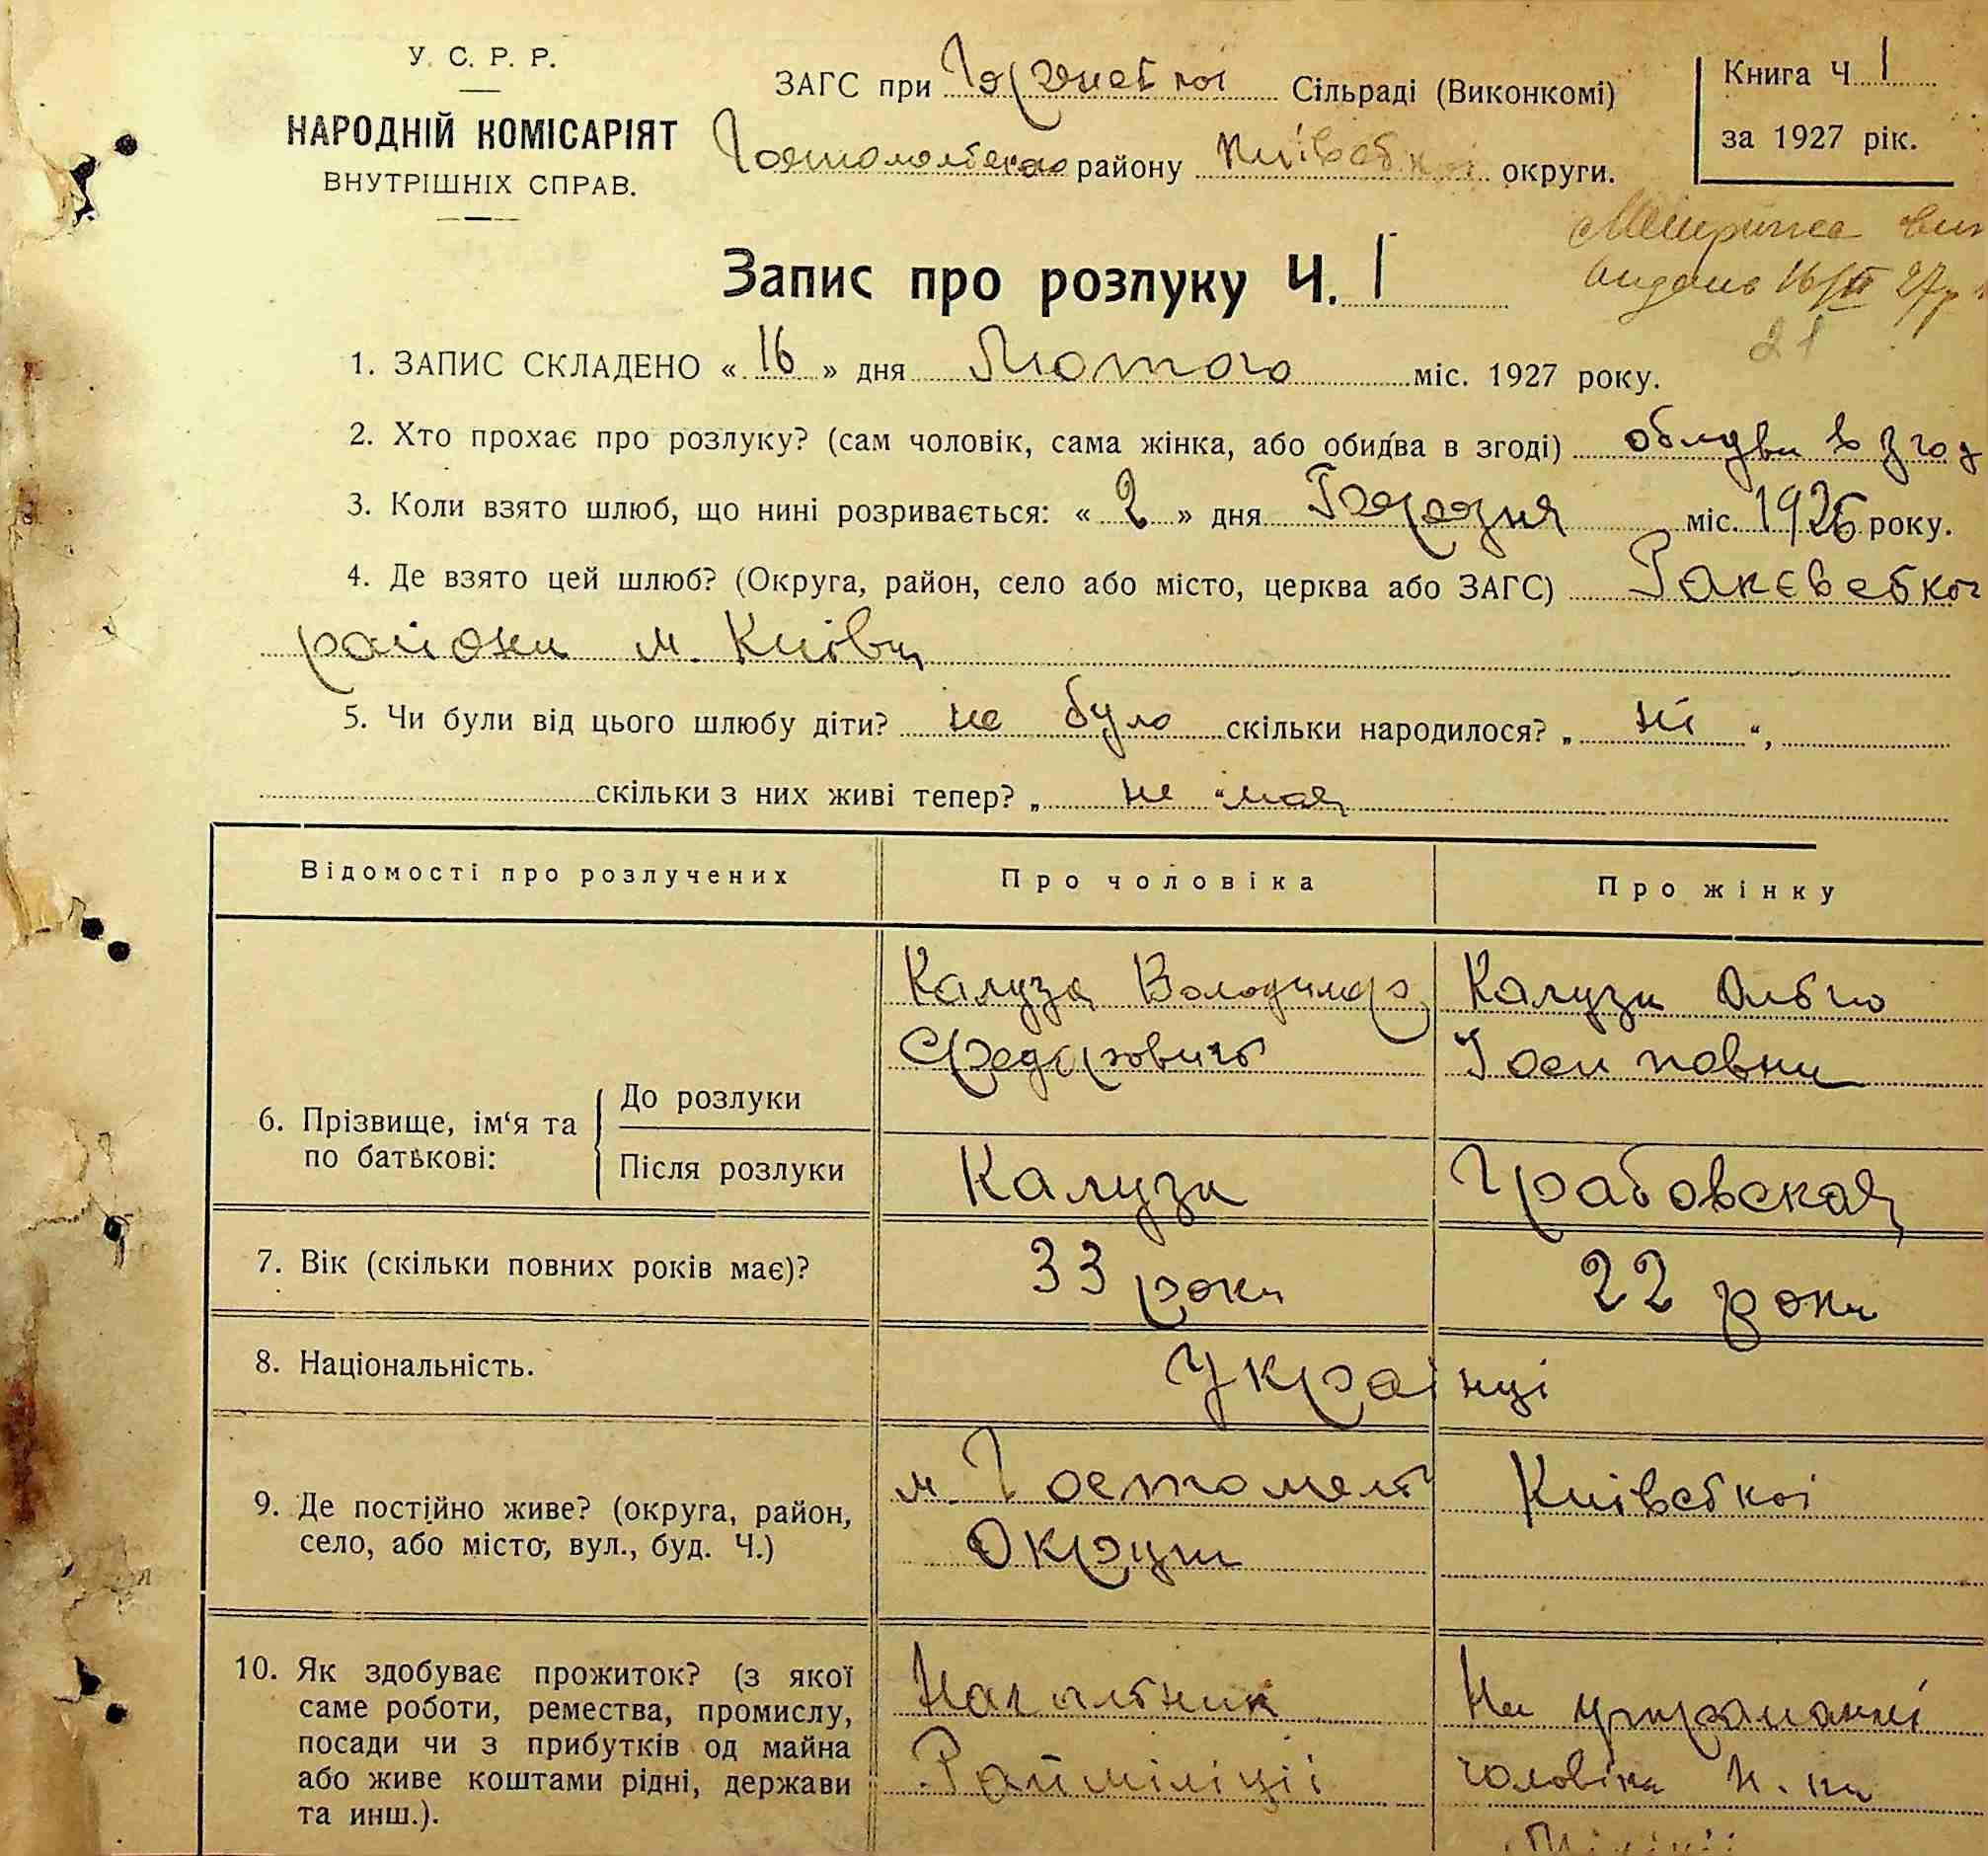 У. С. Р. Р.
НАРОДНІЙ КОМІСАРІЯТ
ВНУТРІШНІХ СПРАВ.
ЗАГС при Сільраді (Виконкомі)
Гостомельскаго району Київської округи.
Книга Ч 1
за 1927 рік.
Метрика
видано 16/II 27р
21
Запис про розлуку Ч. 1
1. ЗАПИС СКЛАДЕНО « 16 » дня Лютого міс. 1927 року.
2. Хто прохає про розлуку? (сам чоловік, сама жінка, або обидва в згоді) обидви в згод
3. Коли взято шлюб, що нині розривається: « 2 » дня Березня міс. 1926 року.
4. Де взято цей шлюб? (Округа, район, село або місто, церква або ЗАГС) Ракєвськоі
району м. Київа
5. Чи були від цього шлюбу діти? не було скільки народилося? „ ні “,
скільки з них живі тепер? „ не “ має
Відомості про розлучених
Про чоловіка
Про жінку
6. Прізвище, ім‘я та по батькові:
До розлуки
Калуза Володимер
Федоровичь
Калуза Ольга
Іосиповна
Після розлуки
Калуза
Грабовская
7. Вік (скільки повних років має)?
33 роки
22 роки
8. Національність.
Украінці
9. Де постійно живе? (округа, район,
село, або місто, вул., буд. Ч.)
м. Гостомель Киівськоі
Округи
10. Як здобуває прожиток? (з якої
саме роботи, ремества, промислу,
посади чи з прибутків од майна
або живе коштами рідні, держави
та инш.).
Начальник
Райміліціі
На утриманні
чоловіка Н. ка
Міліціі